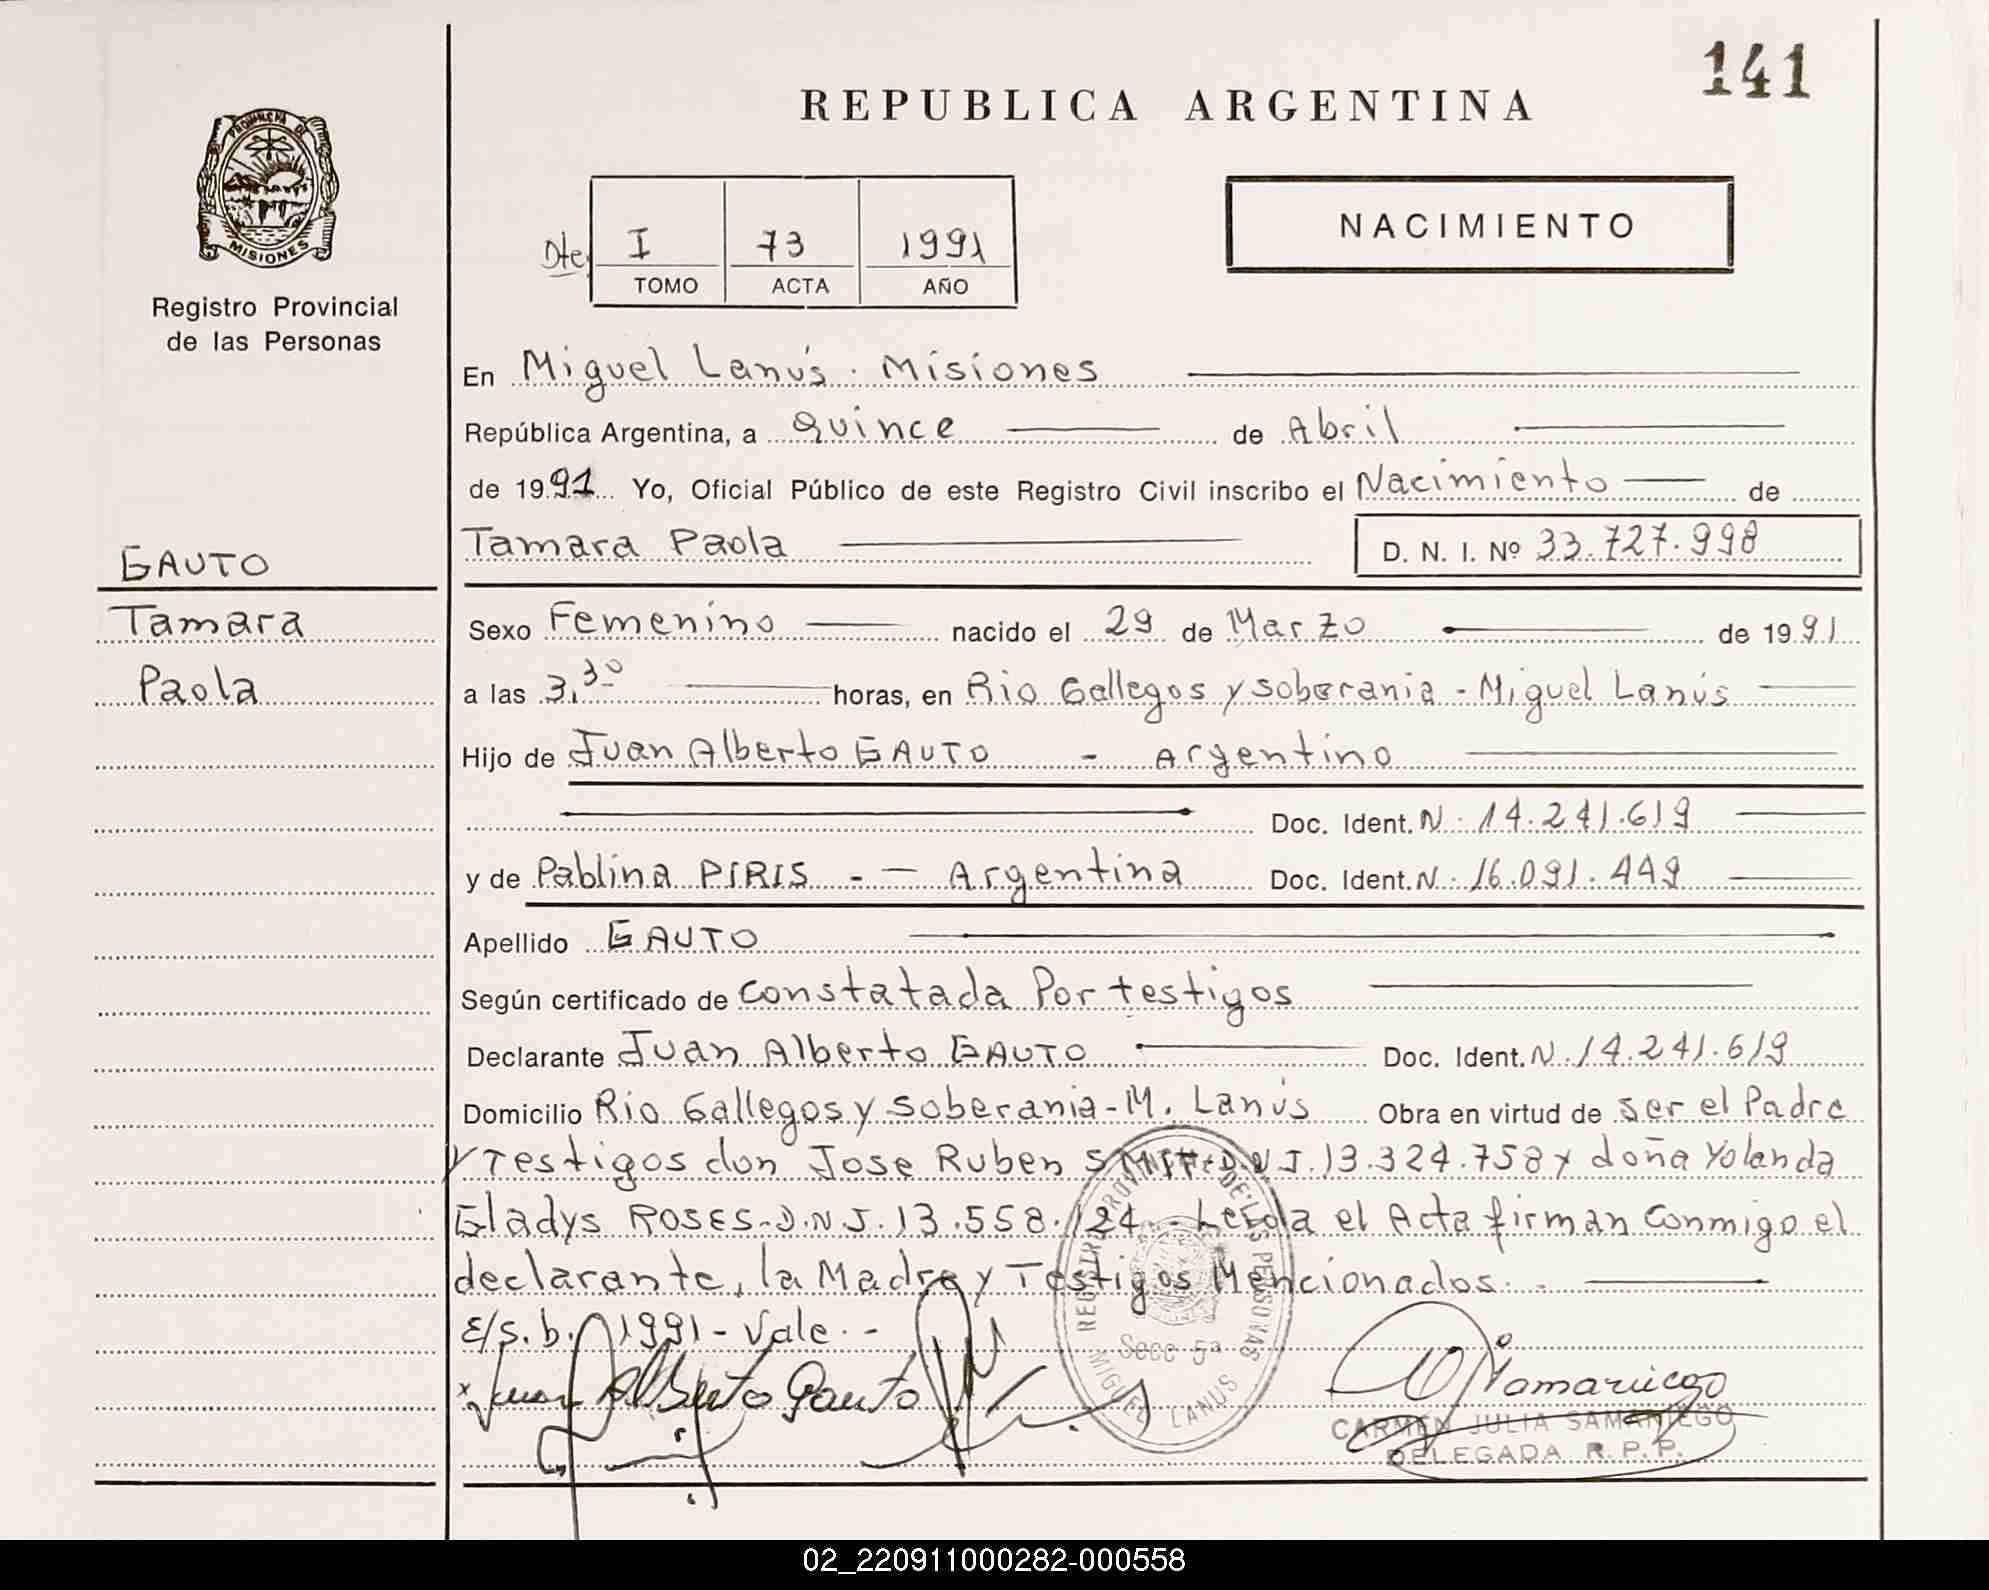 141
REPUBLICA ARGENTINA
PROVINCIA DE
MISIONES
Registro Provincial
de las Personas
NACIMIENTO
Dte. I 73 1991
TOMO ACTA AÑO
En Miguel Lanús. Misiones
República Argentina, a Quince de Abril
de 1991 Yo, Oficial Público de este Registro Civil inscribo el Nacimiento de
Tamara Paola D. N. I. Nº 33.727.998
GAUTO
Tamara
Paola
Sexo Femenino nacido el 29 de Marzo de 1991
a las 3,30 horas, en Rio Gallegos y soberania - Miguel Lanús
Hijo de Juan Alberto GAUTO - Argentino
Doc. Ident. N. 14.241.619
y de Pablina PIRIS - - Argentina Doc. Ident. N. 16.091.449
Apellido GAUTO
Según certificado de constatada Por testigos
Declarante Juan Alberto GAUTO Doc. Ident. N. 14.241.619
Domicilio Rio Gallegos y soberania - M. Lanús Obra en virtud de ser el Padre
y Testigos don Jose Ruben D.N.I. 13.324.758 y doña Yolanda
Gladys ROSES - D.N.I. 13.558.124 - Leida el Acta firman conmigo el
declarante, la Madre y Testigos Mencionados. -
E/s. b. 1991 - Vale. -
x Juan Alberto Gauto
REGISTRO PROVINCIAL DE LAS PERSONAS
Secc 5ª
MIGUEL LANUS
CARMEN JULIA SAMANIEGO
DELEGADA R.P.P.
02_220911000282-000558